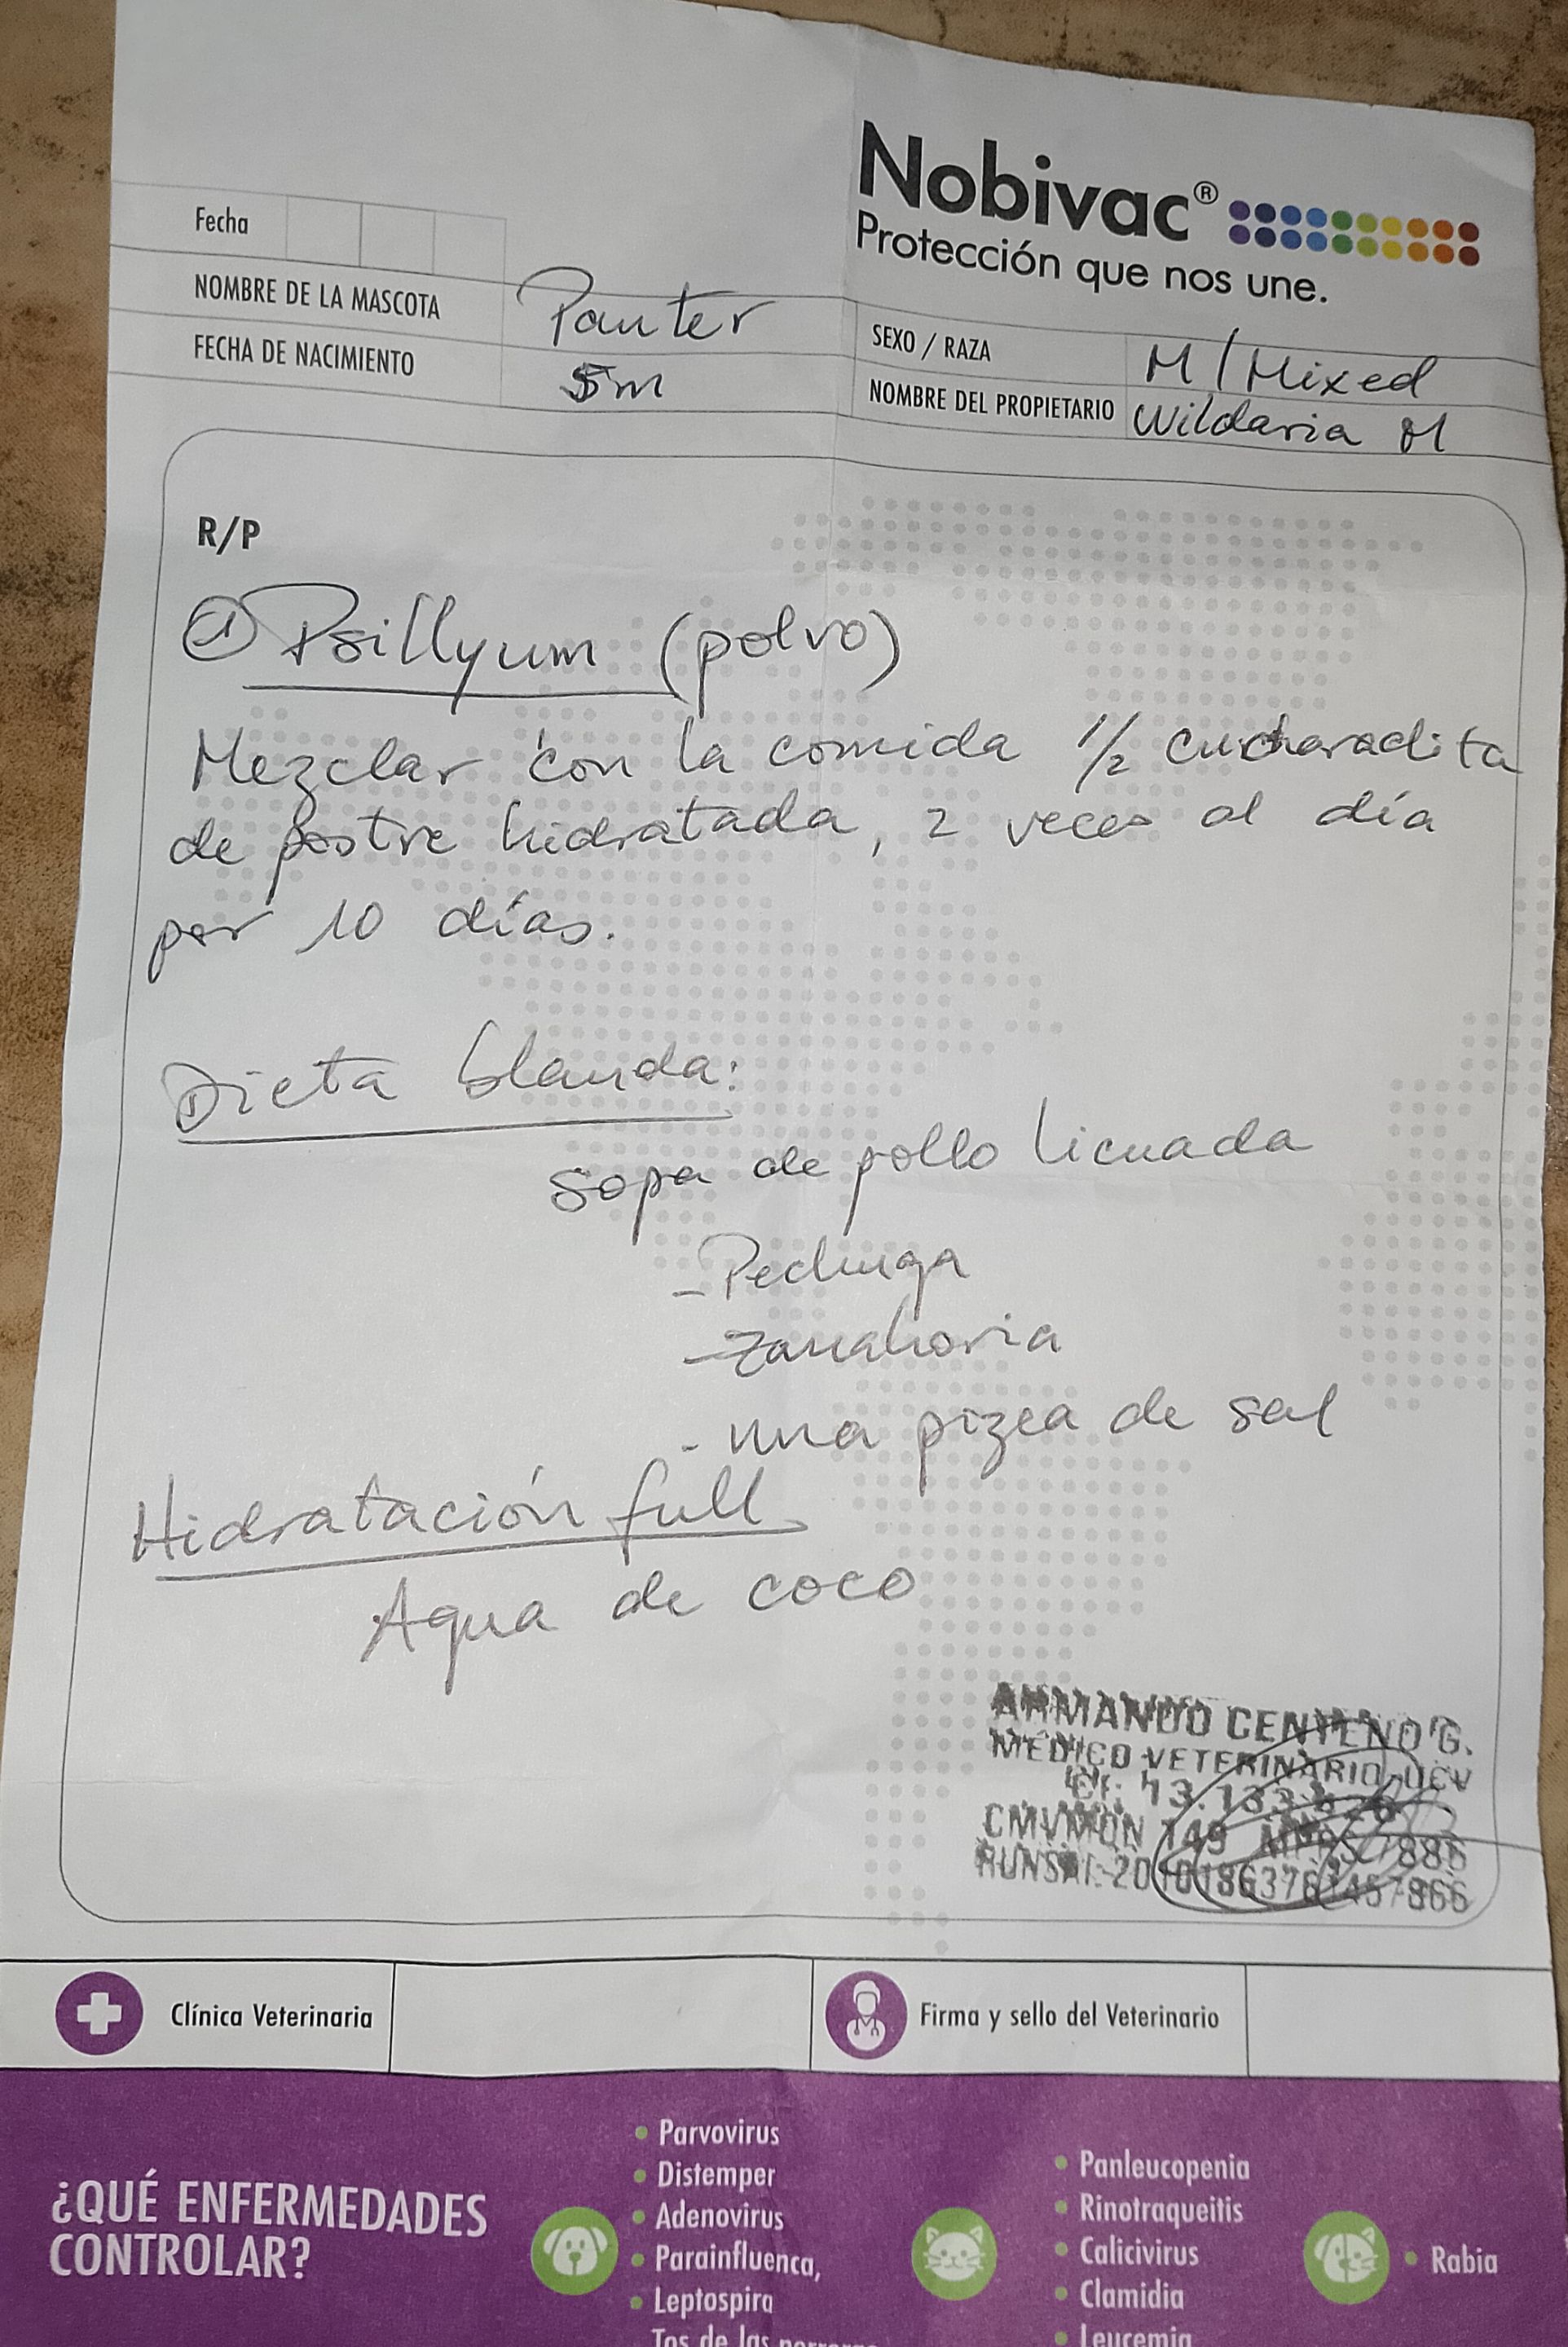 Nobivac®
Protección que nos une.
Fecha
NOMBRE DE LA MASCOTA Panter
FECHA DE NACIMIENTO 5m
SEXO / RAZA M / Mixed
NOMBRE DEL PROPIETARIO Wildaria M
R/P
① Psillyum (polvo)
Mezclar con la comida 1/2 cucharadita
de postre hidratada, 2 veces al día
por 10 días.
Dieta blanda:
sopa de pollo licuada
- Pechuga
- Zanahoria
- una pizca de sal
Hidratación full
Agua de coco
ARMANDO CENTENO G.
MEDICO VETERINARIO-UCV
CMVMON 149
Clínica Veterinaria
Firma y sello del Veterinario
¿QUÉ ENFERMEDADES
CONTROLAR?
• Parvovirus
• Distemper
• Adenovirus
• Parainfluenca,
• Leptospira
Tos de las
• Panleucopenia
• Rinotraqueitis
• Calicivirus
• Clamidia
• Leucemia
• Rabia